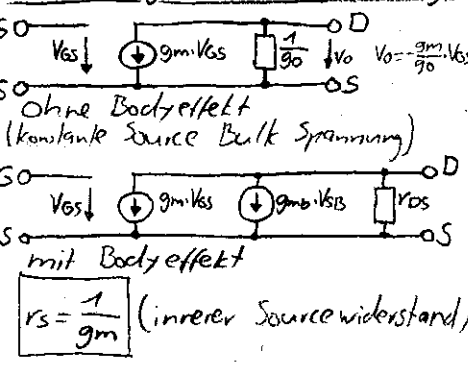 G D
VGS gm·VGS 1/g0 Vo Vo=-gm/g0·VGS
S S
ohne Bodyeffekt
(konstante Source Bulk Spannung)
G D
VGS gm·VGS gmb·VSB rDS
S S
mit Bodyeffekt
rs=1/gm (innerer Sourcewiderstand)